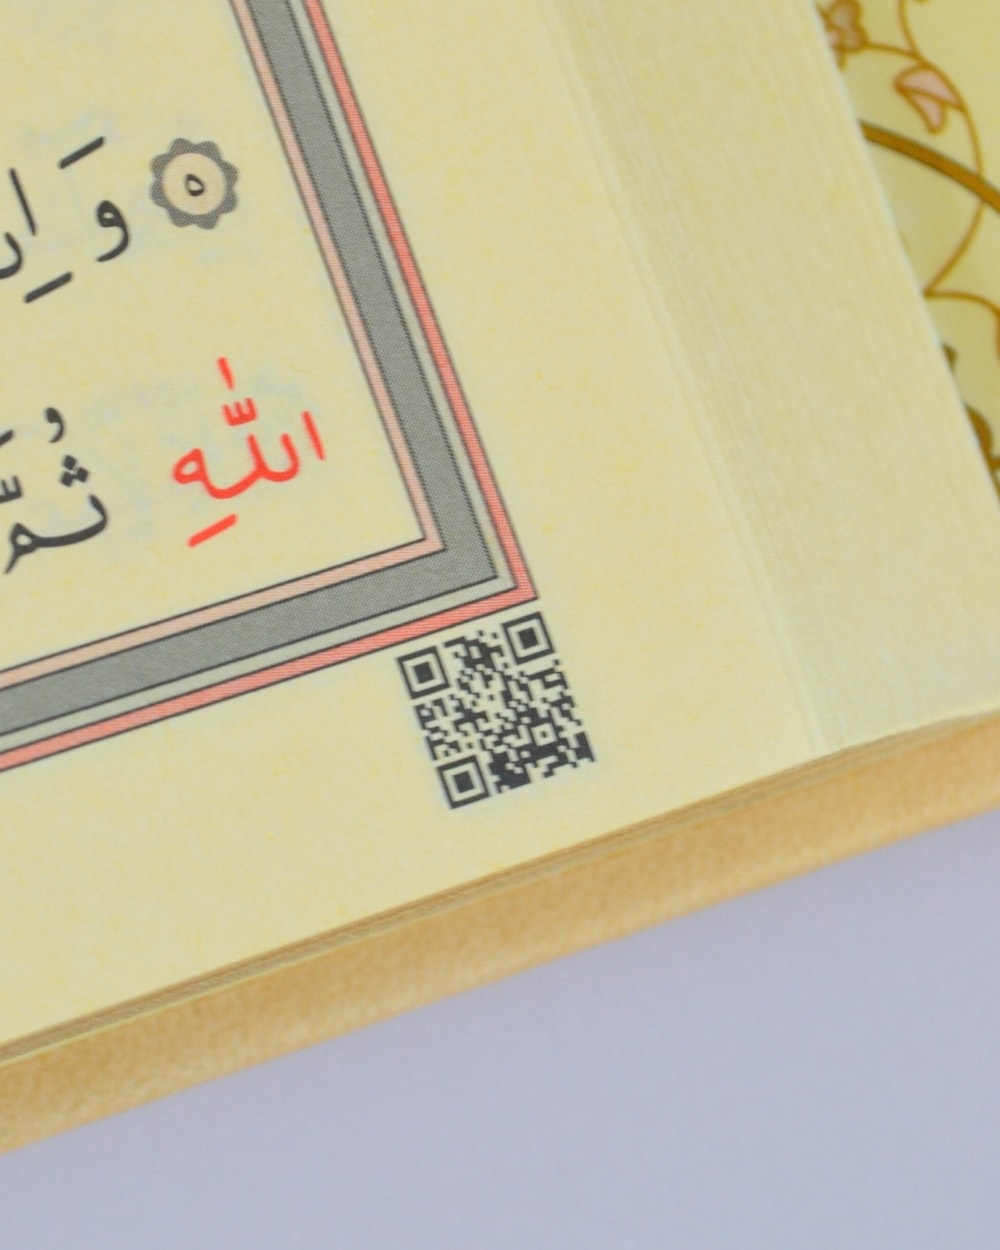 ٥ وَ
اللّٰهِ ثُمَّ